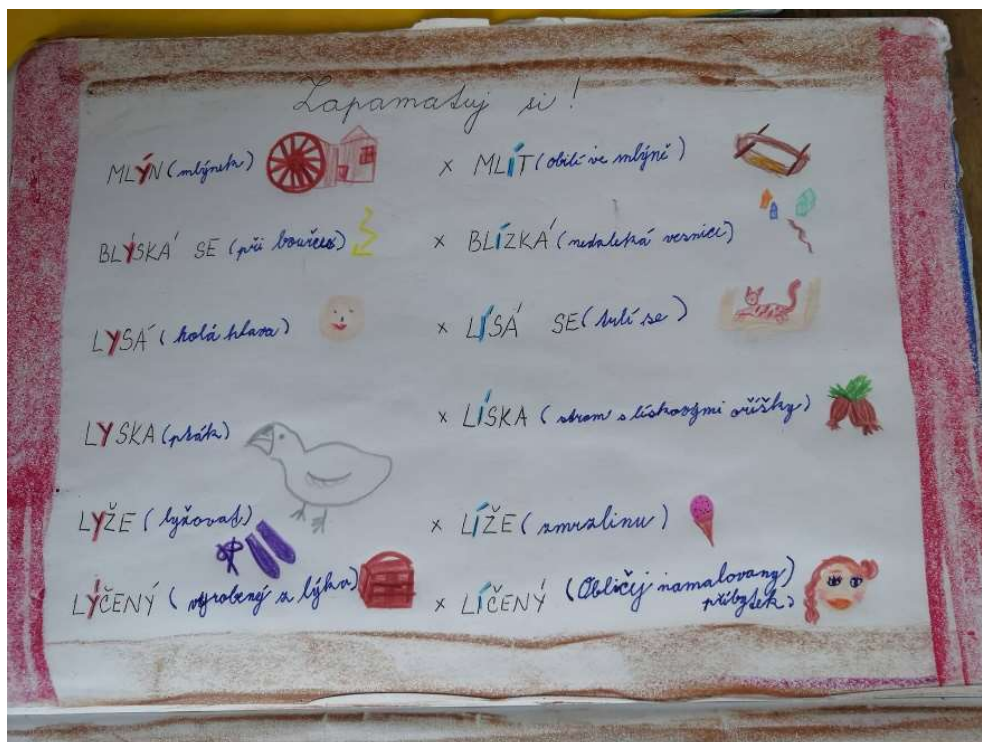 Zapamatuj si!
MLÝN (mlýnek) x MLÍT (obilí ve mlýně)
BLÝSKÁ SE (při bouřce) x BLÍZKÁ (nedaleká vesnice)
LYSÁ (holá hlava) x LÍSÁ SE (tulí se)
LYSKA (pták) x LÍSKA (strom s lískovými oříšky)
LYŽE (lyžovat) x LÍŽE (zmrzlinu)
LÝČENÝ (vyrobený z lýka) x LÍČENÝ (Obličej namalovaný
příbytek)